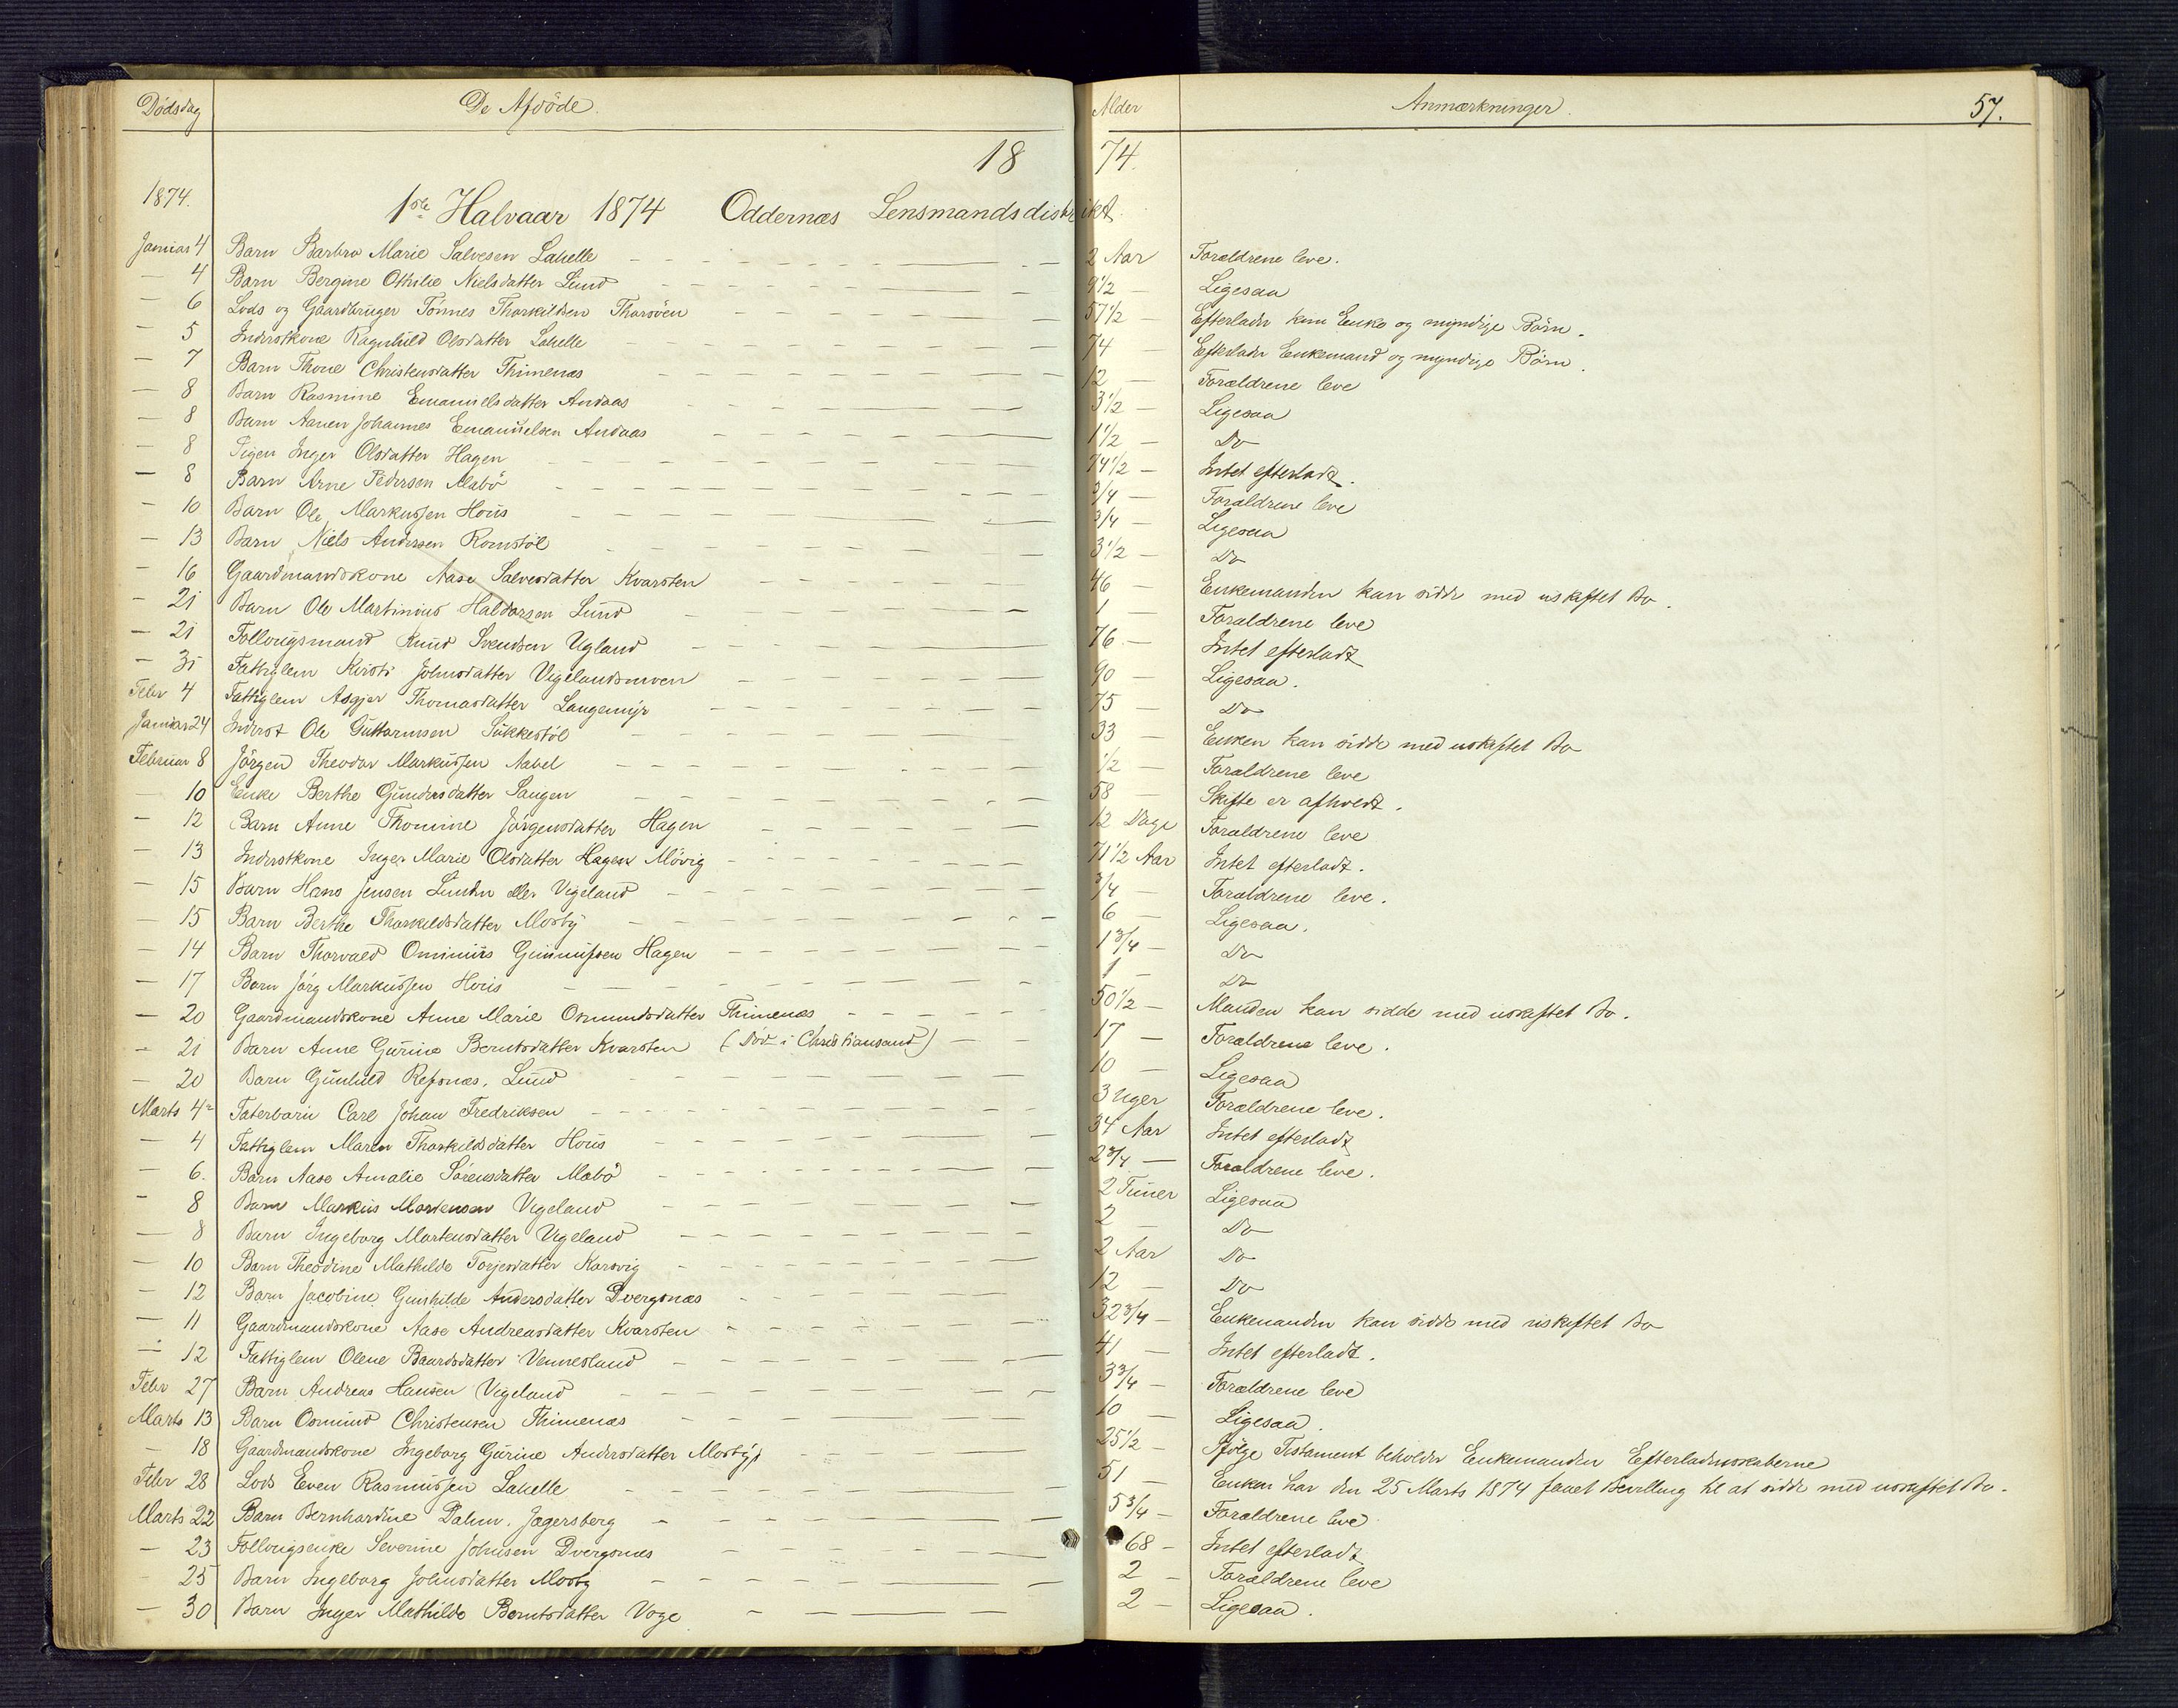 Dødsdag De Afdøde. Alder Anmærkninger. 57.
1874.
1874. 1ste Halvaar 1874 Oddernæs Lensmandsdistrikt.
Januar 4 Barn Barbro Marie Salvesen Lahelle 2 Aar Forældrene leve.
— 4 Barn Bergine Othilie Nielsdatter Lund 9 1/2 — Ligesaa
— 6 Lods og Gaardbruger Tønnes Tharkildsen Tharøven 57 1/2 — Efterlader kun Enke og myndige Børn.
— 5 Inderstkone Ragnhild Olsdatter Lahelle 74 — Efterlader Enkemand og myndige Børn.
— 7 Barn Thone Christensdatter Thimenæs 12 — Forældrene leve
— 8 Barn Rasmine Emanuelsdatter Andaas 3 1/2 — Ligesaa
— 8 Barn Aanen Johannes Emanuelsen Andaas 1 1/2 — Do
— 8 Pigen Inger Olsdatter Hagen 74 1/2 — Intet efterladt.
— 8 Barn Arne Pedersen Mabø 3/4 — Forældrene leve
— 10 Barn Ole Markussen Hous 3/4 — Ligesaa
— 13 Barn Niels Andersen Romstøl 3 1/2 — Do
— 16 Gaardmandskone Aase Salvesdatter Kvarsten 46 — Enkemanden kan sidde med uskiftet Bo.
— 21 Barn Ole Martinius Haldorsen Lund 1 — Forældrene leve
— 21 Follougsmand Knud Svendsen Ugland 76 — Intet efterladt
— 31 Fattiglem Kirsti Johnsdatter Vigelandsmoen 90 — Ligesaa.
Febr 4 Fattiglem Asgjer Thomasdatter Langemyr 75 — Do
Januar 24 Inderst Ole Guttormsen Sukkestøl 33 — Enken kan sidde med uskiftet Bo
Februar 8 Jörgen Theodor Markussen Aabel 1/2 — Forældrene leve
— 10 Enke Berthe Gundersdatter Saugen 58 — Skifte er afholdt.
— 12 Barn Anne Thomine Jörgensdatter Hagen 12 Dage Forældrene leve
— 13 Inderstkone Inger Marie Olsdatter Hagen Møvig 71 1/2 Aar Intet efterladt.
— 15 Barn Hans Jensen Linden eller Vigeland 3/4 — Forældrene leve.
— 15 Barn Berthe Tharkildsdatter Mosby 6 — Ligesaa.
— 14 Barn Thorvald Ominius Gunnufsen Hagen 1 3/4 — Do
— 17 Barn Jörg Markussen Houis 1 — Do
— 20 Gaardmandskone Anne Marie Osmundsdatter Thimenæs 50 1/2 — Manden kan sidde med uskiftet Bo.
— 21 Barn Anne Gurine Berntsdatter Kvarsten (Død i Christiansand) 17 — Forældrene leve.
— 20 Barn Gunhild Refsnæs, Lund 10 — Ligesaa
Marts 4 Taterbarn Carl Johan Fredriksen 3 Uger Forældrene leve.
— 4 Fattiglem Maren Tharkildsdatter Houis 34 Aar Intet efterladt
— 6. Barn Aase Amalie Sørensdatter Mabø 2 3/4 — Forældrene leve.
— 8 Barn Markus Mortensen Vigeland 2 Timer Ligesaa
— 8 Barn Ingeborg Mortensdatter Vigeland 2 — Do
— 10 Barn Theodine Mathilde Torjesdatter Korsvig 2 Aar Do
— 12 Barn Jacobine Gunhilde Andersdatter Dvergsnæs 12 — Do
— 11 Gaardmandskone Aase Andreasdatter Kvarsten 32 3/4 — Enkemanden kan sidde med uskiftet Bo
— 12 Fattiglem Olene Baardsdatter Vennesland 41 — Intet efterladt.
Febr 27 Barn Andreas Hansen Vigeland 3 3/4 — Forældrene leve
Marts 13 Barn Osmund Christensen Thimenæs 10 — Ligesaa.
— 18 Gaardmandskone Ingeborg Gurine Andersdatter Mosby 25 1/2 — Ifølge Testament beholder Enkemanden Efterladenskaberne
Febr 28 Lods Even Rasmussen Lahelle 51 — Enken har den 25 Marts 1874 faaet Bevilling til at sidde med uskiftet Bo.
Marts 22 Barn Bernhardine Palm, Jægersberg 5 3/4 — Forældrene leve
— 23 Follougsenke Severine Johnsen Dvergsnæs 68 — Intet efterladt
— 25 Barn Ingeborg Johnsdatter Mosby 2 — Forældrene leve
— 30 Barn Inger Mathilde Berntsdatter Voge 2 — Ligesaa.